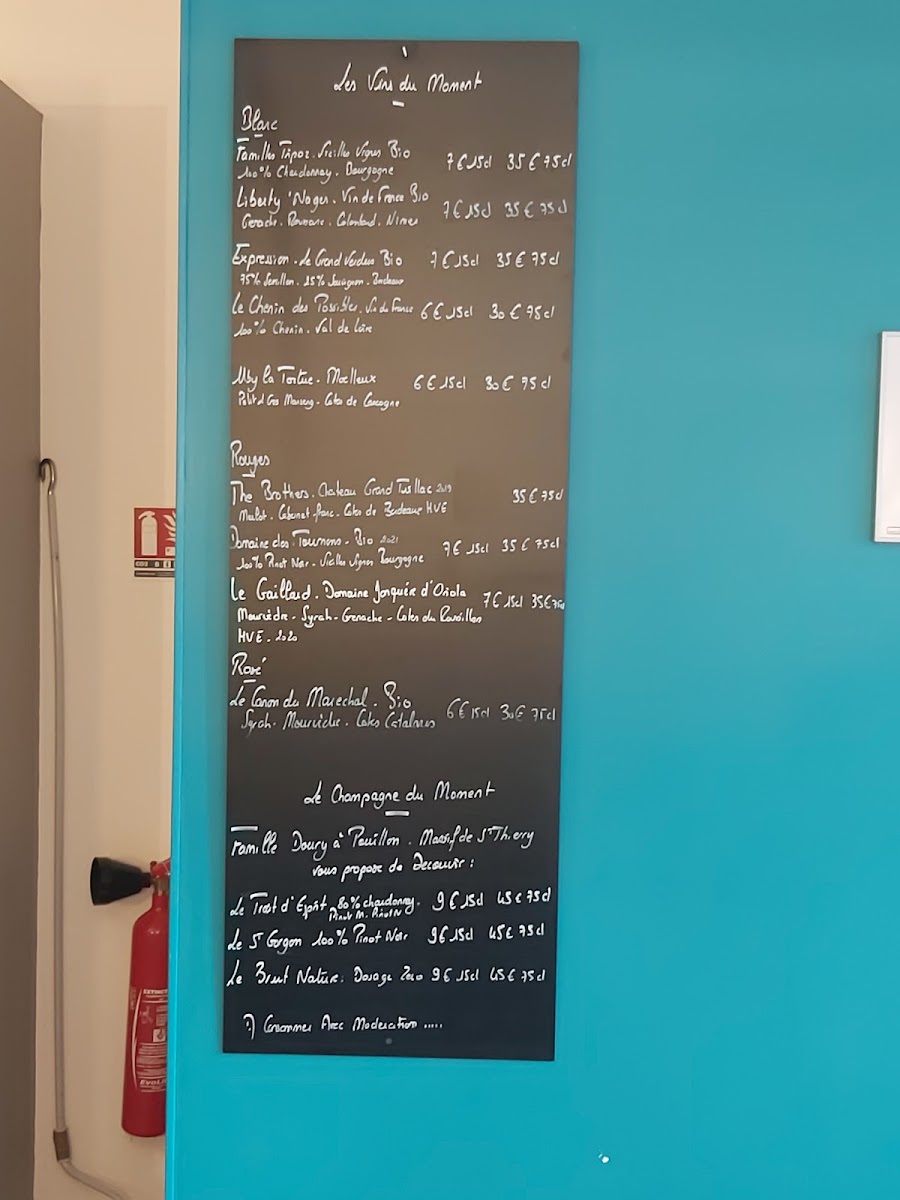 Les Vins du Moment
Blanc
Famille Tripoz. Vieilles Vignes Bio 7€ 15cl 35€ 75cl
100% Chardonnay. Bourgogne
Liberty 'Nages. Vin de France Bio 7€ 15cl 35€ 75cl
Grenache. Roussane. Colombard. Nimes
Expression. Le Grand Verdus Bio 7€ 15cl 35€ 75cl
75% Semillon. 15% Sauvignon. Bordeaux
Le Chenin des Possibles. Vin de France 6€ 15cl 30€ 75cl
100% Chenin. Val de Loire
Uby la Tortue. Moelleux 6€ 15cl 30€ 75cl
Petit et Gros Manseng. Cotes de Gascogne
Rouges
The Brothers. Chateau Grand Tuillac 2019 35€ 75cl
Merlot. Cabernet franc. Cotes de Bordeaux HVE
Domaine des Tournons. Bio 2021 7€ 15cl 35€ 75cl
100% Pinot Noir. Vieilles Vignes Bourgogne
Le Gaillard. Domaine Jonquère d'Oriola 7€ 15cl 35€ 75cl
Mourvèdre. Syrah. Grenache. Cotes du Roussillon
HVE. 2020
Rosé
Le Canon du Marechal. Bio 6€ 15cl 30€ 75cl
Syrah. Mourvèdre. Cotes Catalanes
Le Champagne du Moment
Famille Doury à Pouillon. Massif de St Thierry
vous propose de Decouvrir :
Le Trait d'Esprit 80% chardonnay. 9€ 15cl 45€ 75cl
Pinot M. Pinot N
Le St Gorgon 100% Pinot Noir 9€ 15cl 45€ 75cl
Le Brut Nature. Dosage Zero 9€ 15cl 45€ 75cl
:) Consommer Avec Moderation .....